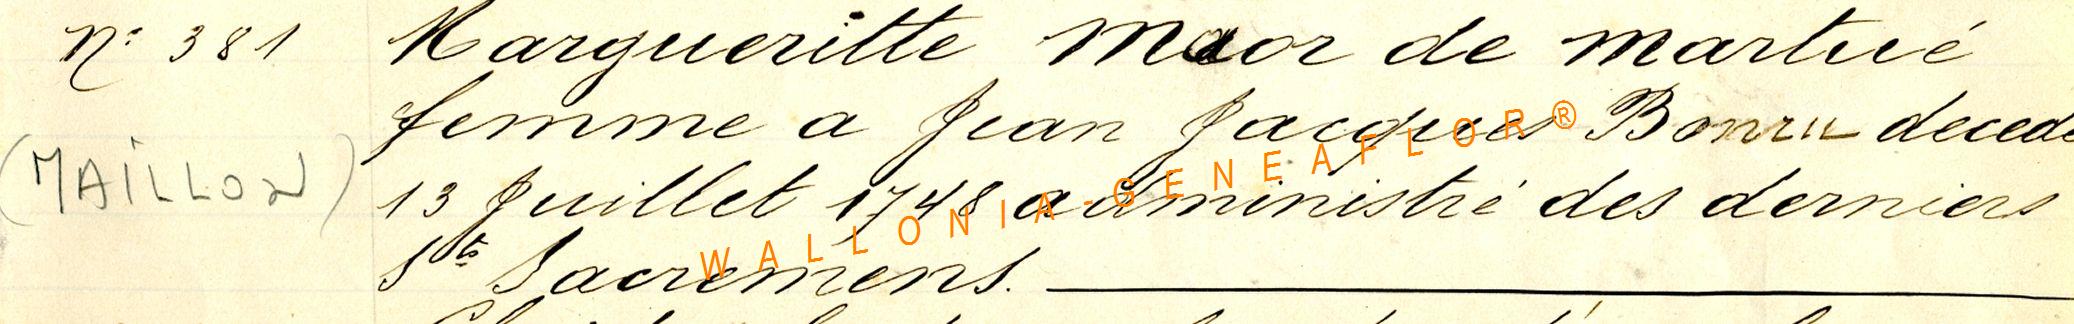 N° 381 Margueritte Maor de martué
femme a Jean Jacques Bonru decede
(MAILLON)
13 Juillet 1748 administré des derniers
Sts Sacremens.
WALLONIA-GENEAFLOR®